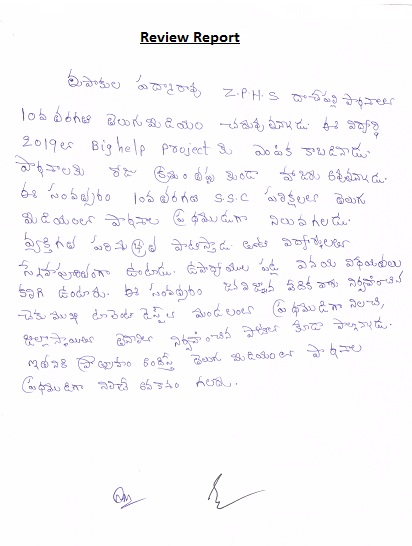 Review Report
పద్మారావు Z.P.H.S పాఠశాలలో
10వ తరగతి తెలుగు మీడియం చదువుతున్నాడు. ఈ విద్యార్థి
2019లో Bighelp Project కు ఎంపిక కాబడినాడు.
పాఠశాలకు రోజు క్రమం తప్పకుండా హాజరు అవుతున్నాడు.
ఈ సంవత్సరం 10వ తరగతి S.S.C పరీక్షలలో తెలుగు
మీడియంలో పాఠశాల ప్రథముడుగా నిలువగలడు.
వ్యక్తిగత పరిశుభ్రత పాటిస్తాడు. ఇతర విద్యార్థులతో
స్నేహపూర్వకంగా ఉంటాడు. ఉపాధ్యాయుల పట్ల వినయ విధేయతలు
కలిగి ఉంటాడు. ఈ సంవత్సరం జన విజ్ఞాన వేదిక వారు నిర్వహించిన
చెకుముకి టాలెంట్ టెస్ట్ లో మండలంలో ప్రథముడిగా నిలిచి,
జిల్లాస్థాయిలో నిర్వహించిన పోటీలలో కూడా పాల్గొన్నాడు.
ఇతనికి ప్రోత్సాహం కల్పిస్తే తెలుగు మీడియంలో పాఠశాల
ప్రథముడిగా నిలిచే అవకాశం గలదు.